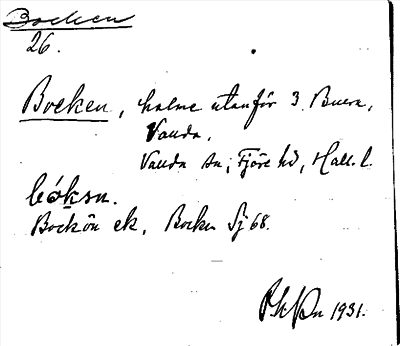 Bocken
26.
Bocken, holme utanför 3 Buera,
Vanda.
Vanda sn, Fjäre hd, Hall. l.
bóksn.
Bockön ek, Bocken Sj 68.
1931.